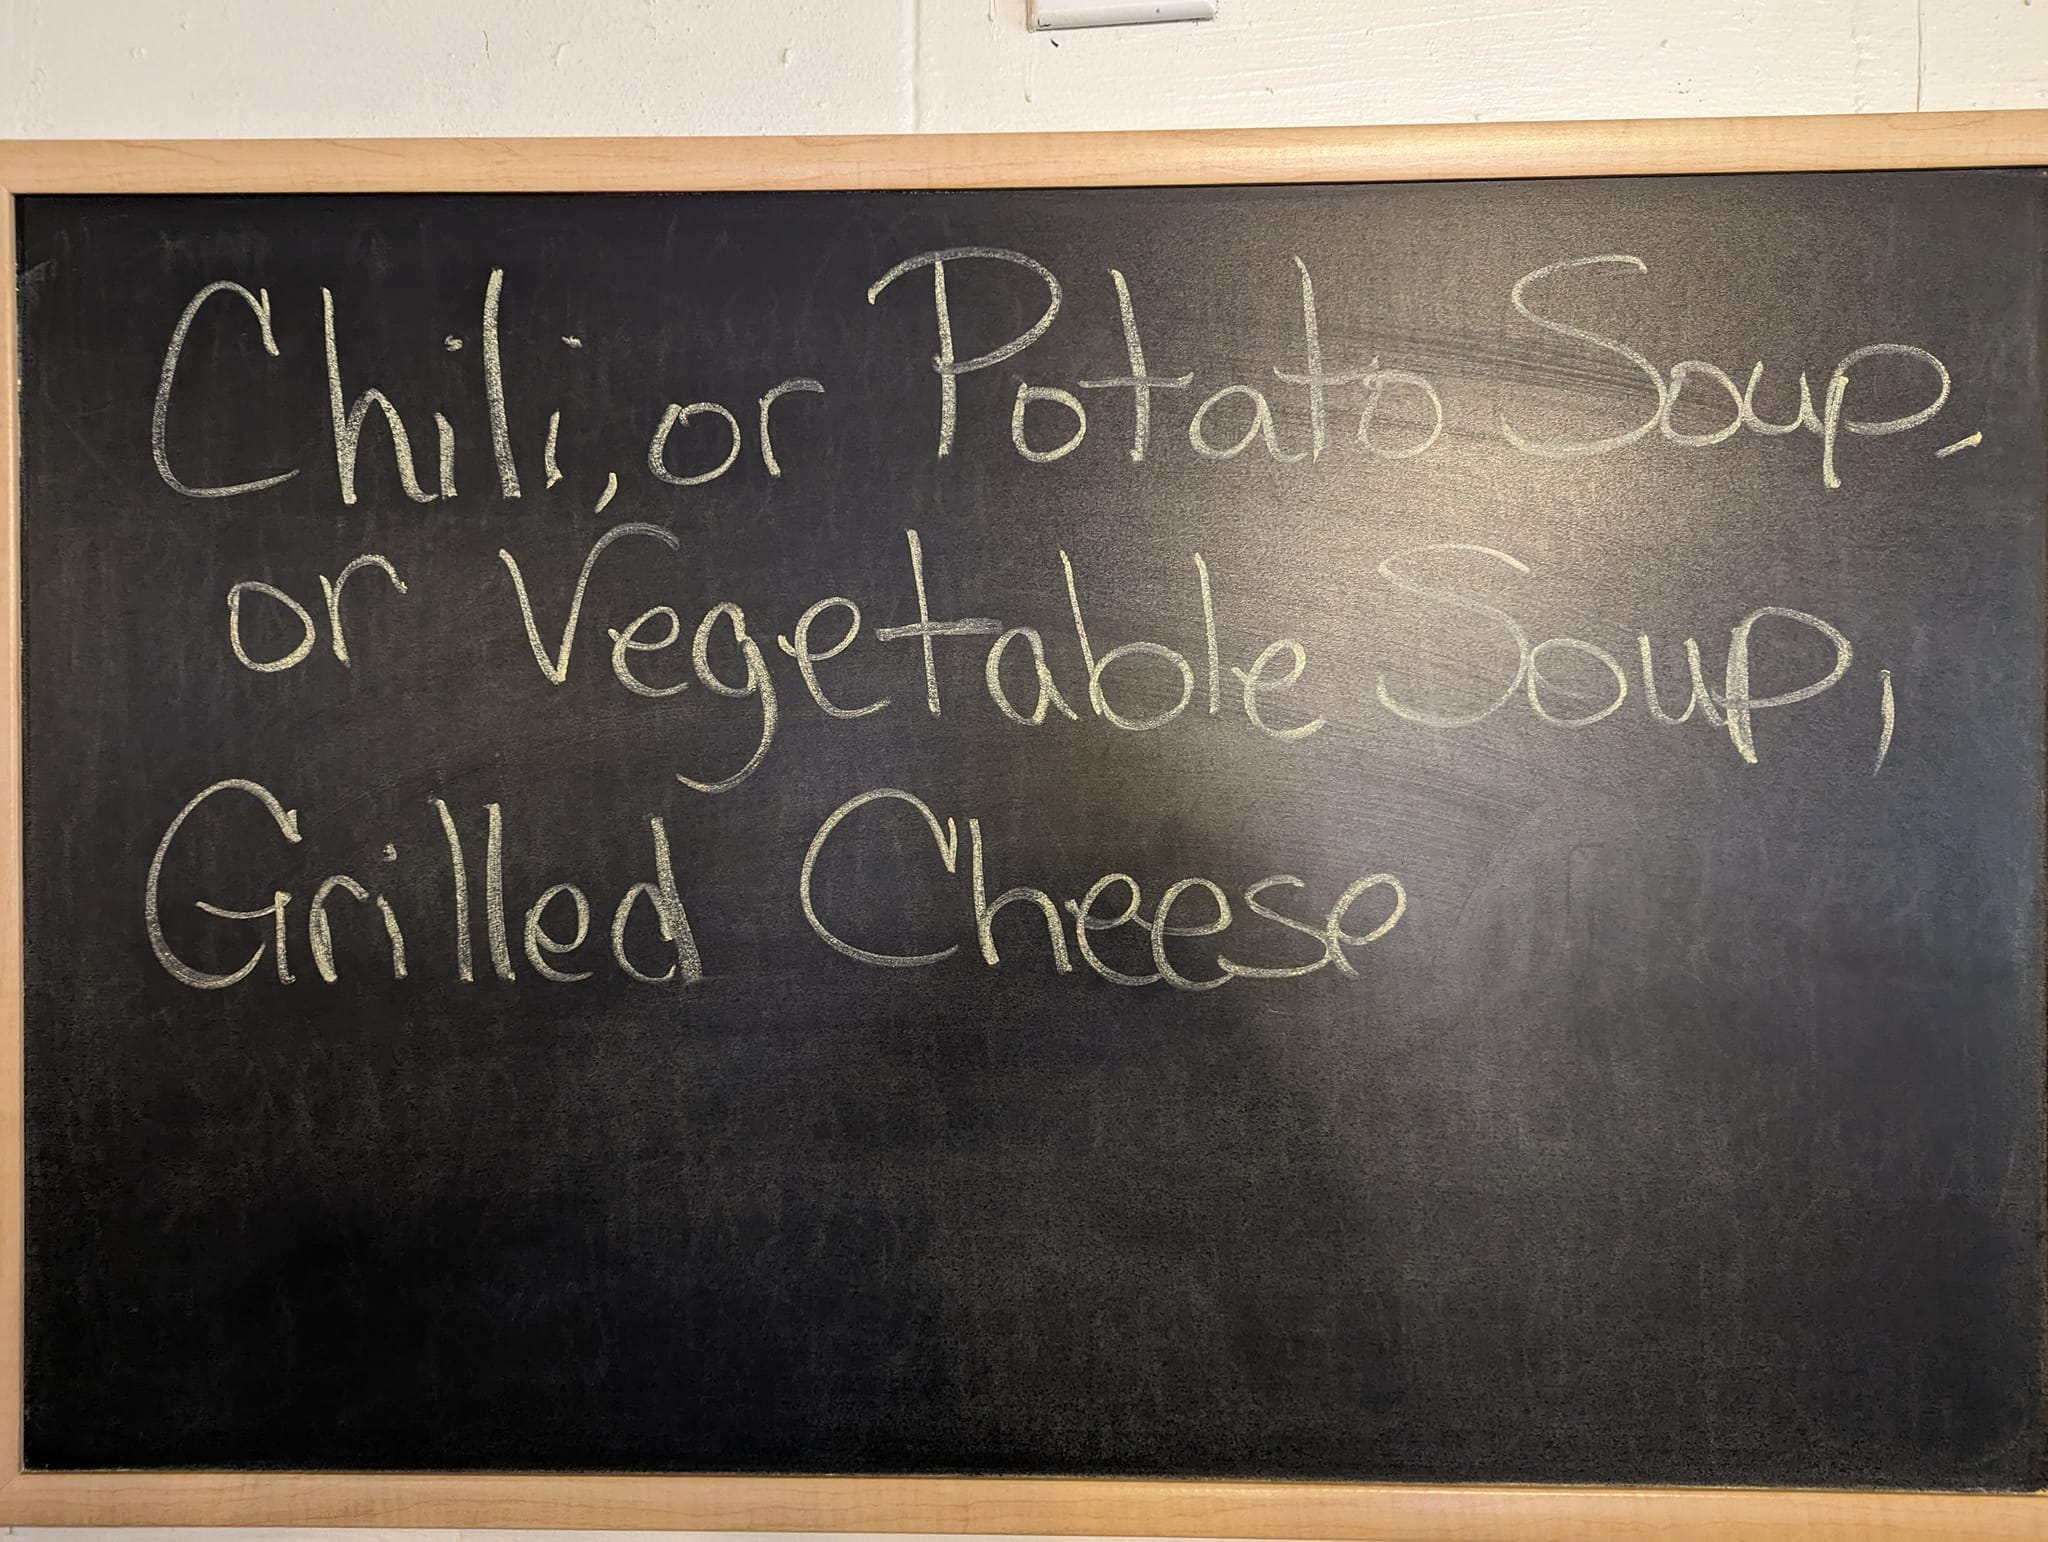 Chili, or Potato Soup,
or Vegetable Soup,
Grilled Cheese